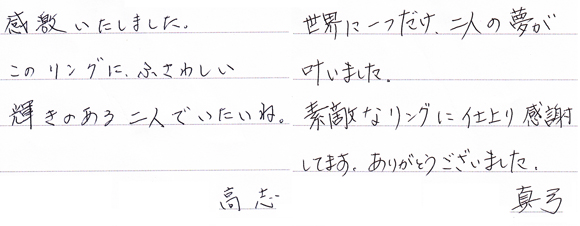 感激いたしました。
このリングに、ふさわしい
輝きのある二人でいたいね。
高志
世界に一つだけ、二人の夢が
叶いました。
素敵なリングに仕上り感謝
してます。ありがとうございました。
真弓